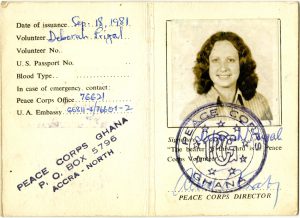 Date of issuance Sep. 18, 1981
Volunteer Deborah
Volunteer No.
U.S. Passport No.
Blood Type
In case of emergency contact:
Peace Corps Office 76621
U.A. Embassy
PEACE CORPS GHANA
P. O. BOX 5796
ACCRA - NORTH
PEACE CORPS
GHANA
"The bearer Peace
Corps Volunteer
PEACE CORPS DIRECTOR